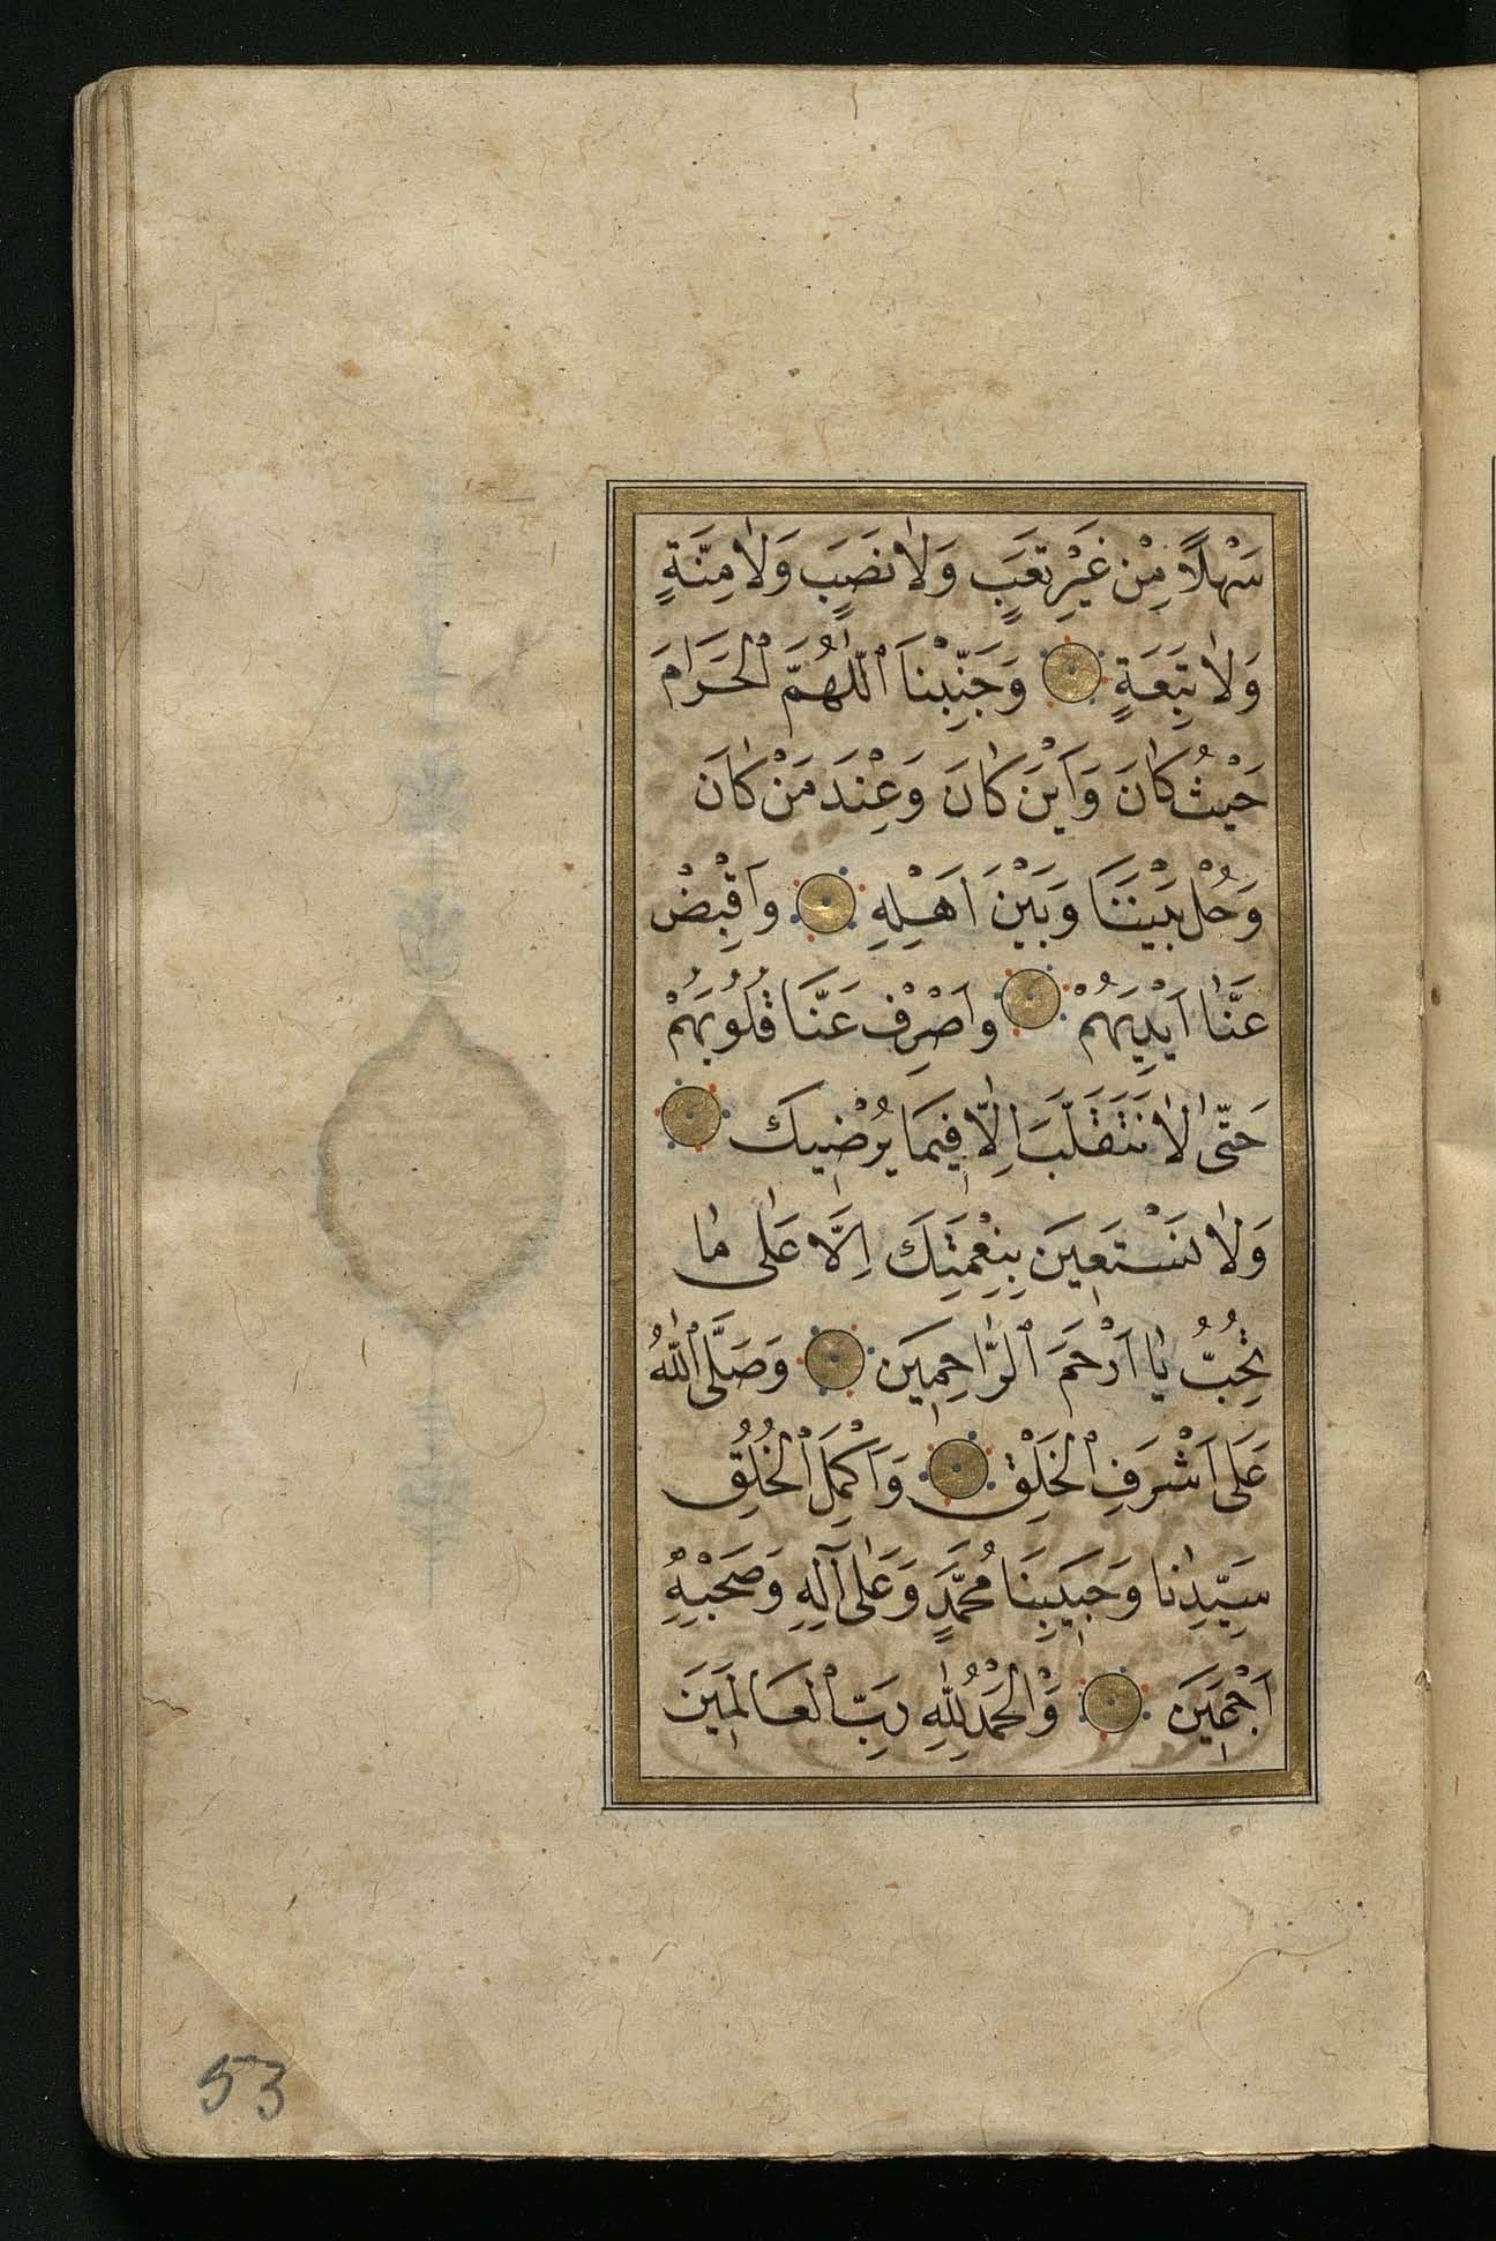 سَهْلًا مِنْ غَيْرِ تَعَبٍ وَلَا نَصَبٍ وَلَا مِنَّةٍ
وَلَا تَبِعَةٍ وَجَنِّبْنَا اللّٰهُمَّ الْحَرَامَ
حَيْثُ كَانَ وَاَيْنَ كَانَ وَعِنْدَ مَنْ كَانَ
وَحُلْ بَيْنَنَا وَبَيْنَ اَهْلِهِ وَاقْبِضْ
عَنَّا اَيْدِيَهُمْ وَاصْرِفْ عَنَّا قُلُوبَهُمْ
حَتّٰى لَا نَتَقَلَّبَ اِلَّا فِيمَا يُرْضِيكَ
وَلَا نَسْتَعِينَ بِنِعْمَتِكَ اِلَّا عَلٰى مَا
تُحِبُّ يَا اَرْحَمَ الرَّاحِمِينَ وَصَلَّى اللّٰهُ
عَلٰى اَشْرَفِ الْخَلْقِ وَاَكْمَلِ الْخُلُقِ
سَيِّدِنَا وَحَبِيبِنَا مُحَمَّدٍ وَعَلٰى آلِهِ وَصَحْبِهِ
اَجْمَعِينَ وَالْحَمْدُ لِلّٰهِ رَبِّ الْعَالَمِينَ
53